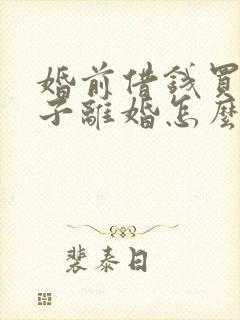 婚前借錢買
子離婚怎麼
裴泰日